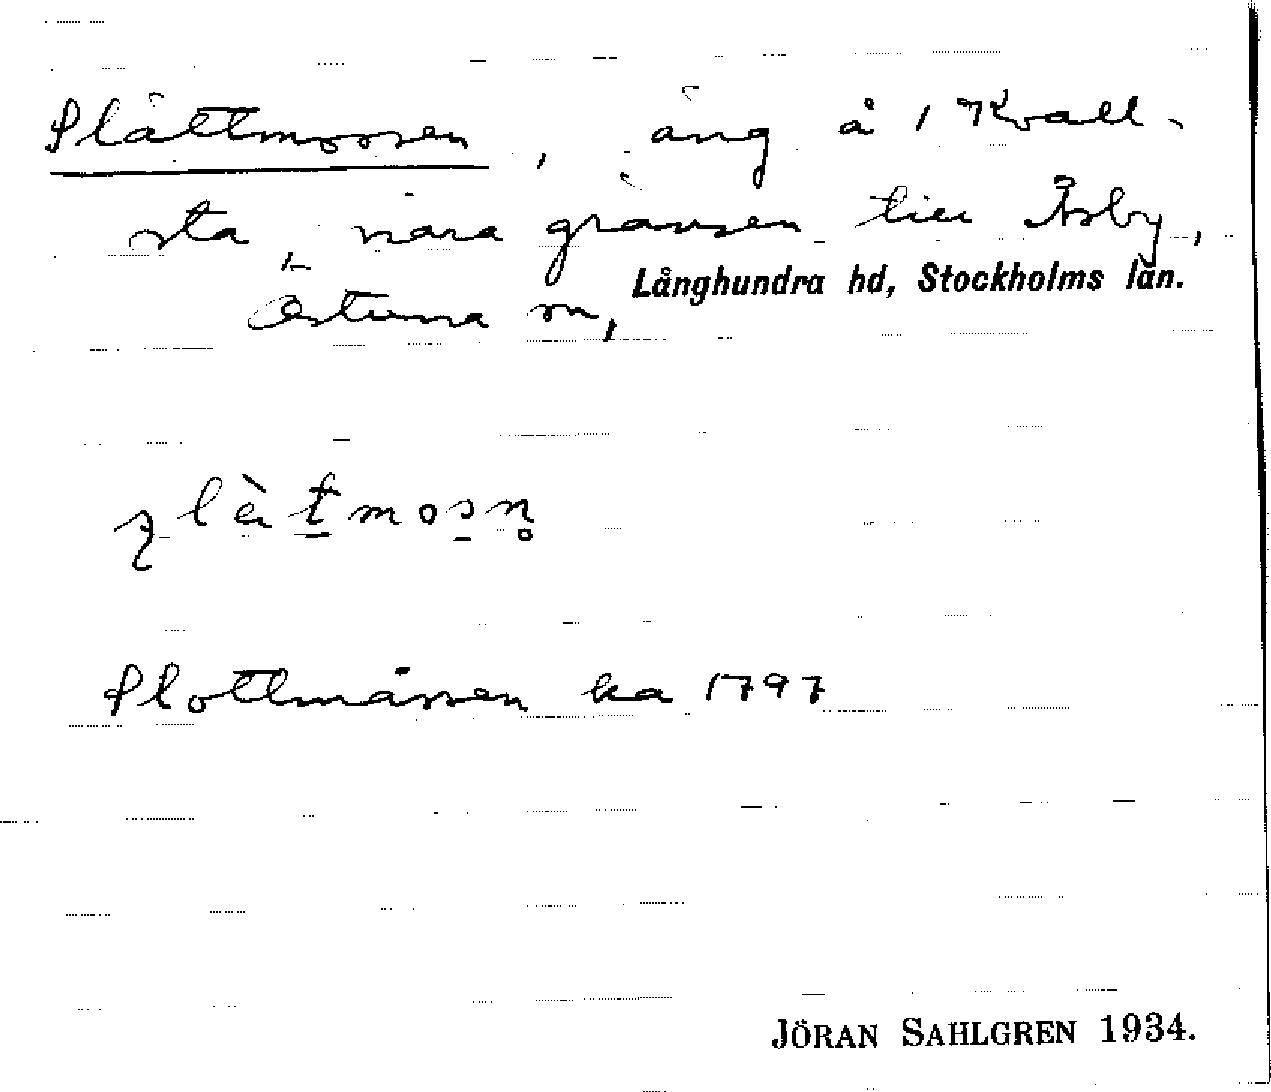 Plättmossen, äng å 1 Kvall-
sta, nära gränsen till Åsby,
Östuna sn, Långhundra hd, Stockholms län.
plàtmosn̥
Plottmåssen ka 1797
JÖRAN SAHLGREN 1934.